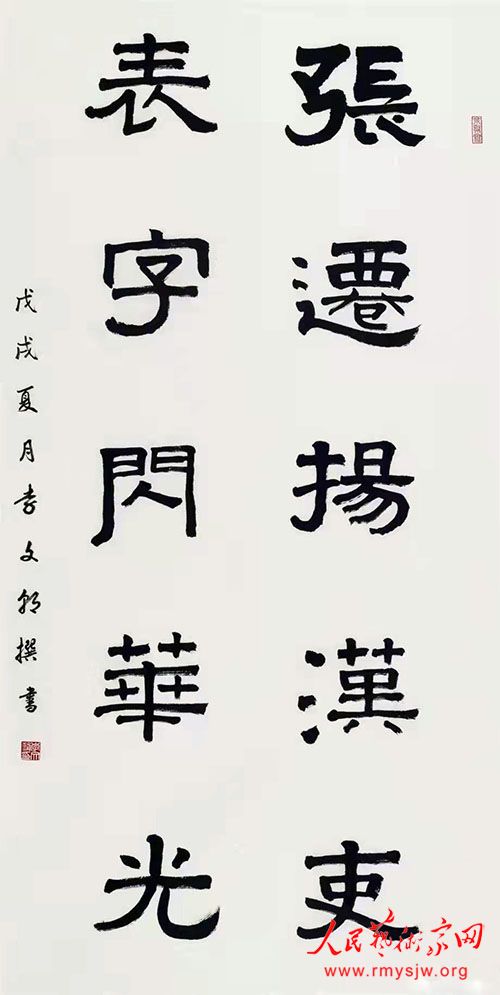 張遷揚漢吏
表字閃華光
戊戌夏月李文朝撰書
人民藝術家网
www.rmysjw.org